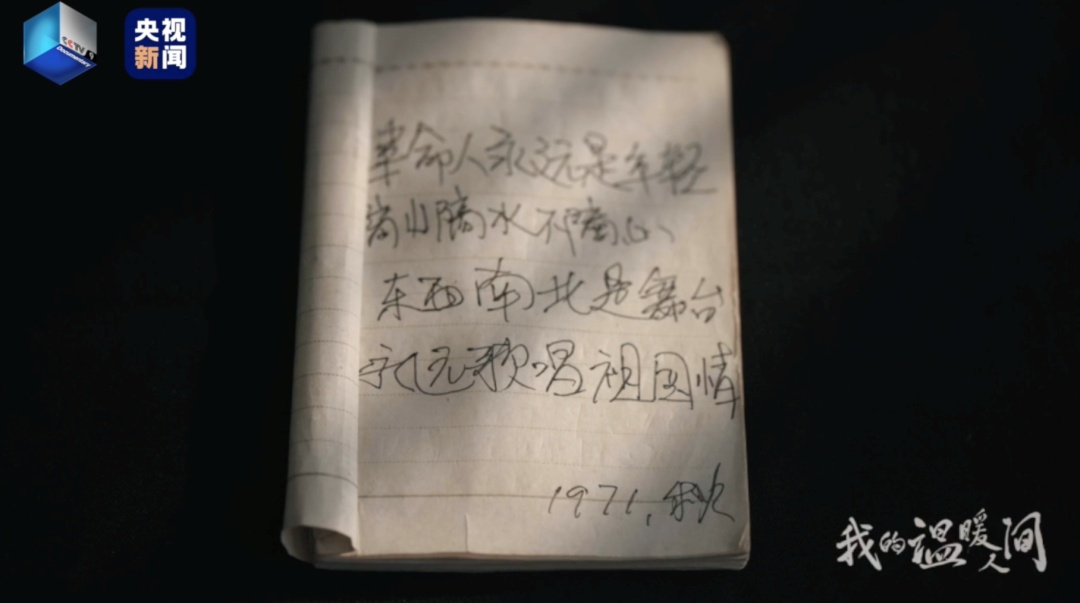 CCTV 9
Documentary
央视
新闻
革命人永远是年轻
离山隔水不离心
东西南北是舞台
永远歌唱祖国情
1971,秋
我的温暖人间